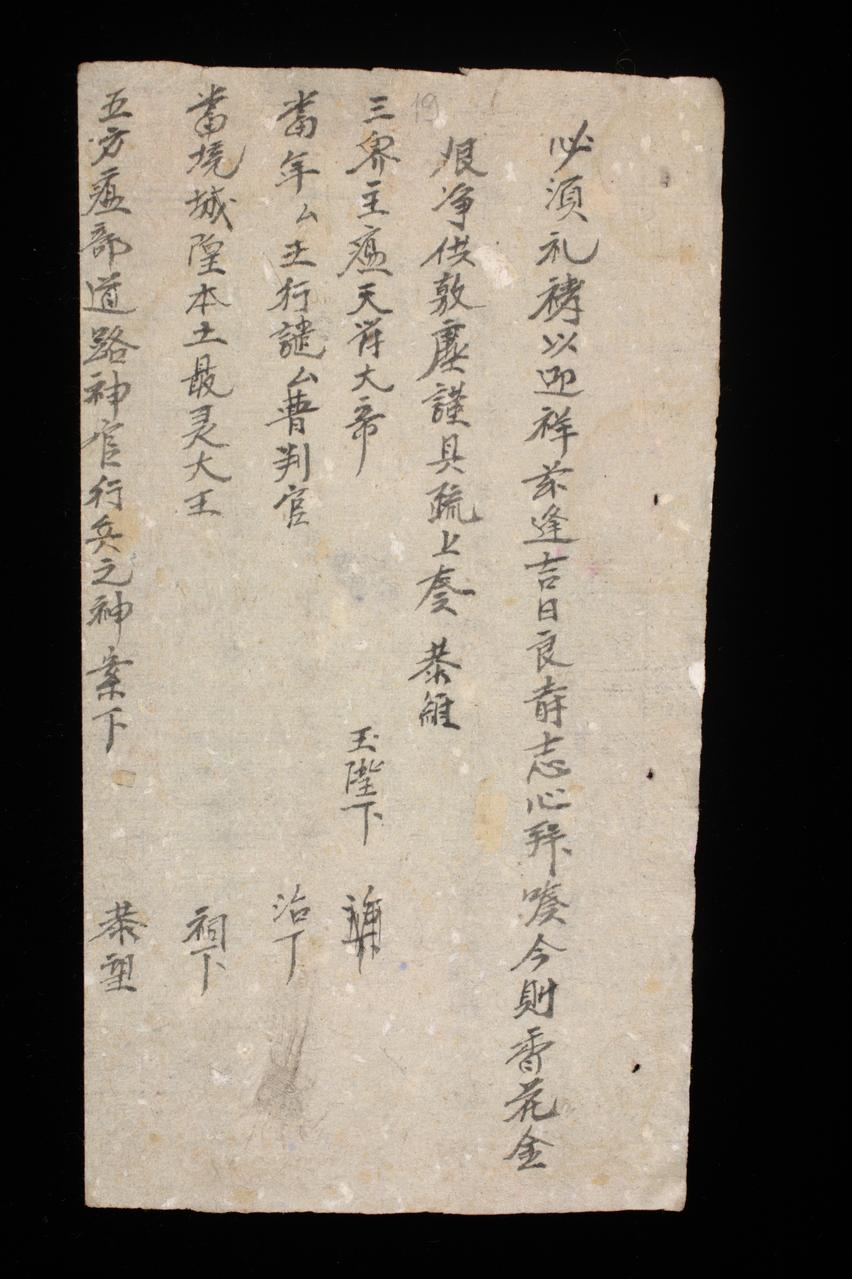 必須礼禱以迎祥茲逢吉日良辰志心拜奏今則香花金
銀净供敦塵謹具疏上奏 恭維
三界主瘟天符大帝 玉陛下
當年厶王行譴厶曹判官 治下
當境城隍本土最灵大王 祠下
五方瘟部道路神官行兵之神 案下 恭望
19